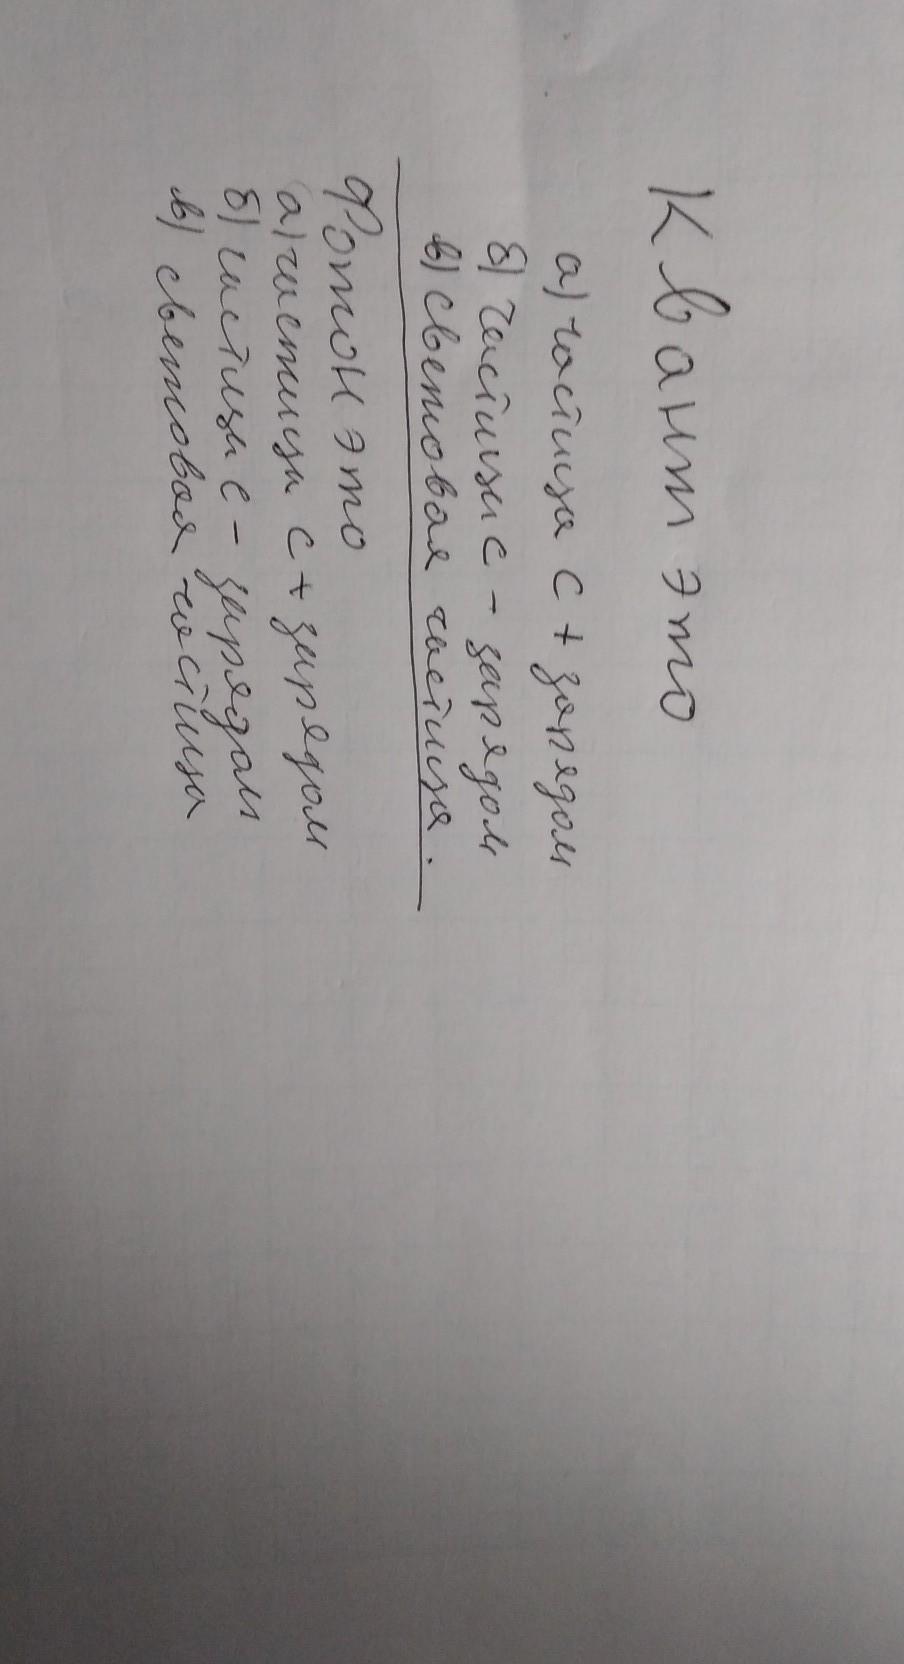 Квант это
а) частица с + зарядом
б) частица с - зарядом
в) световая частица.
Фотон это
а) частица с + зарядом
б) частица с - зарядом
в) световая частица